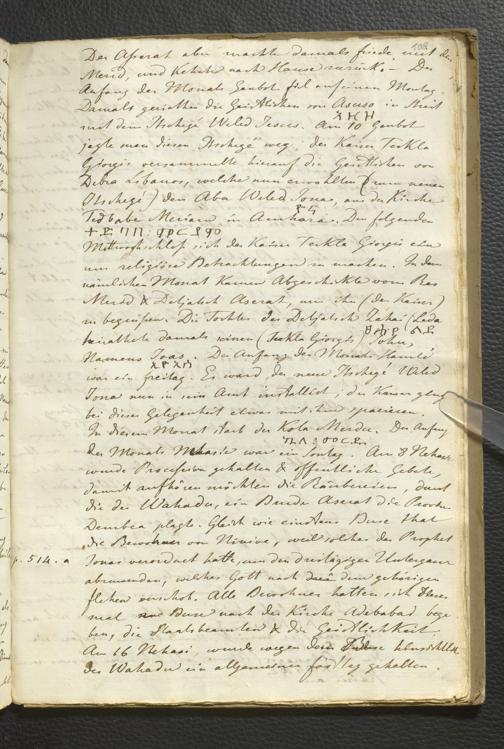 108
Der Asserat aber machte damals friede mit dem
Merid, und kehrte nach Hause zurück. — Der
Anfang des Monats Genbot fiel auf einen Montag.
Damals geriethen die Geistlichen von Asuso in Streit
mit dem Itschegé Weled Jesus. Am 10 Genbot
jagte man diesen Itschegé weg. der Kaiser Teckla
Giorgis versammelte hierauf die Geistlichen von
Debra Libanos, welche nun erwählten (zum neuen
Itschegé) den Aba Weled Jona, aus der Kirche
Tedbabe Meriam in Amhara. Den folgenden
ተድባበ ማርያም
Mittwoch schloss sich der Kaiser Teckla Giorgis ein
um religiöse Betrachtungen zu machen. In dem
nämlichen Monat kamen Abgeschickte vom Ras
Merid & Detjatsch Aserat, um ihn (der Kaiser)
zu begrüssen. Die Tochter des Detjatsch Zahai Lada
heirathete damals seinen (Teckla Giorgis) Sohn,
Namens Joas. Der Anfang des Monats Hamlé
war ein freitag. Es ward der neue Itschegé Weled
Jona nun in sein Amt installirt, der Kaiser gieng
bei dieser Gelegenheit etwas mit ihm spazieren.
In diesem Monat starb der Kola Merdu. Der Anfang
des Monats Nehasie war ein Sontag. Am 8 Nehase
wurde Procession gehalten & öffentliche Gebete,
damit aufhören möchten die Räubereien, durch
die der Wahadu, ein Bruder Aserat die Provinz
Dembea plagte. Gleich wie einstens Buse that
die Bewohner von Ninive, weil solches der Prophet
p. 514. a Jonas verordnet hatte, um den dreitägigen Untergang
abzuwenden, welches Gott nach dem gehörigen
flehen verschob. Alle Bewohner hatten sich dieses
mal zur Buse nach der Kirche Webabad bege
ben, die Staatsbeamten & die Geistlichkeit.
Am 16 Nehasi, wurde wegen
des Wahadu ein allgemeiner fasttag gehalten.